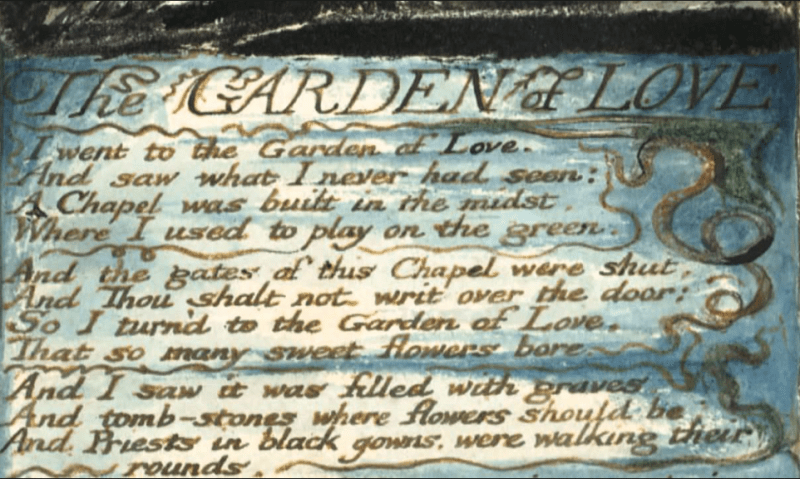 The GARDEN of LOVE
I went to the Garden of Love.
And saw what I never had seen:
A Chapel was built in the midst,
Where I used to play on the green.
And the gates of this Chapel were shut,
And Thou shalt not. writ over the door:
So I turn'd to the Garden of Love.
That so many sweet flowers bore.
And I saw it was filled with graves,
And tomb-stones where flowers should be:
And Priests in black gowns. were walking their
rounds.